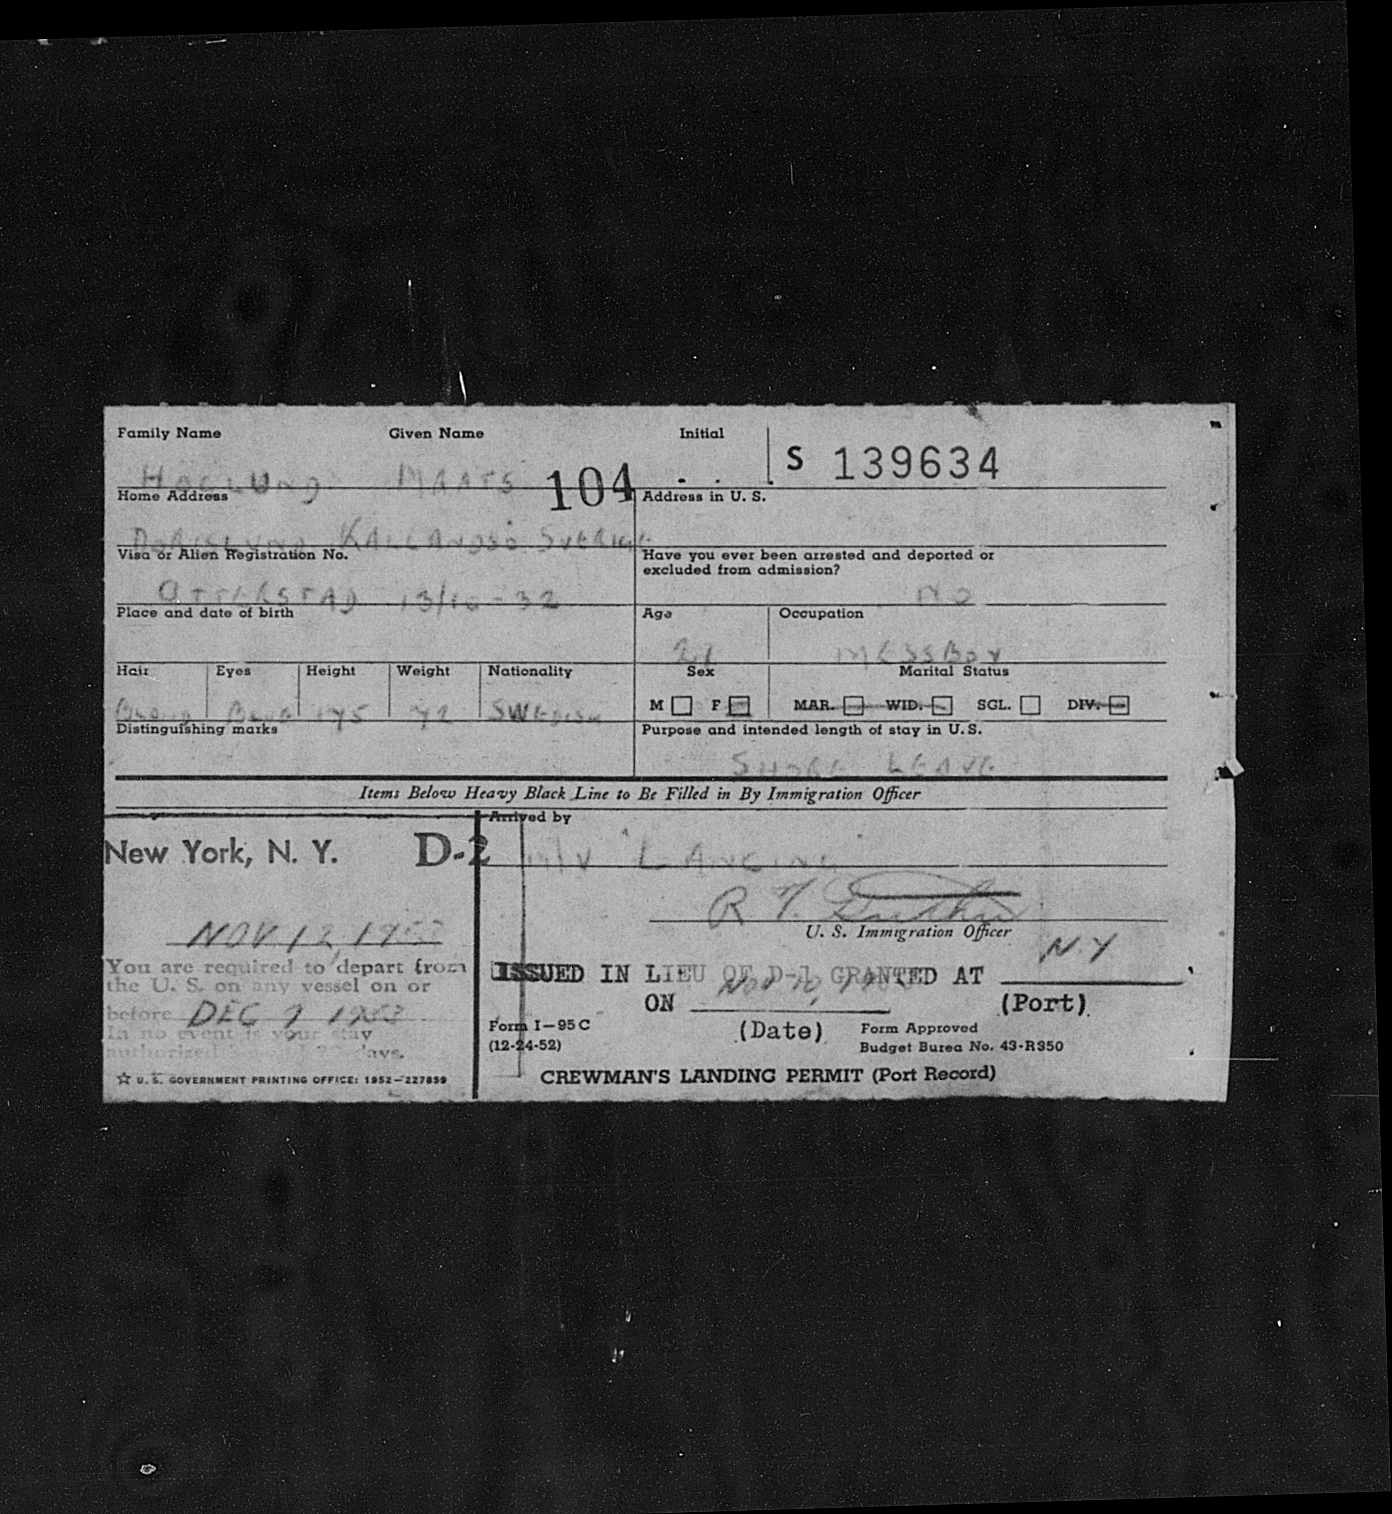 Family Name Given Name Initial S 139634
HOGLUND MAATS 104
Home Address Address in U. S.
KALLANDSÖ SVERIGE
Visa or Alien Registration No. Have you ever been arrested and deported or
excluded from admission?
OTTERSTAD 13/10-32 NO
Place and date of birth Age Occupation
21 MESSBOY
Hair Eyes Height Weight Nationality Sex Marital Status
M F MAR. WID. SGL. DIV.
BLOND BLUE 175 72 SWEDISH
Distinguishing marks Purpose and intended length of stay in U. S.
SHORE LEAVE
Items Below Heavy Black Line to Be Filled in By Immigration Officer
Arrived by
New York, N. Y. D-2 M/V LANCING
R
NOV 12, 1953 U. S. Immigration Officer
N.Y
You are required to depart from ISSUED IN LIEU OF D-1 GRANTED AT
the U. S. on any vessel on or NOV 10,
before DEC 9 1953 ON (Port)
In no event is your stay Form I-95 C (Date) Form Approved
authorized days. (12-24-52) Budget Burea No. 43-R350
☆ U. S. GOVERNMENT PRINTING OFFICE: 1952—227859 CREWMAN'S LANDING PERMIT (Port Record)